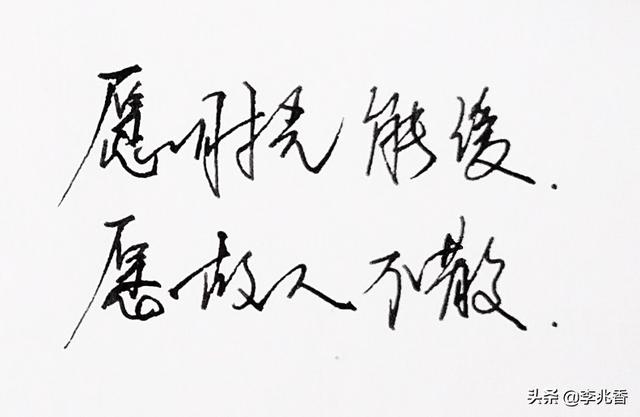 愿时光能缓.
愿故人不散.
头条 @李兆香